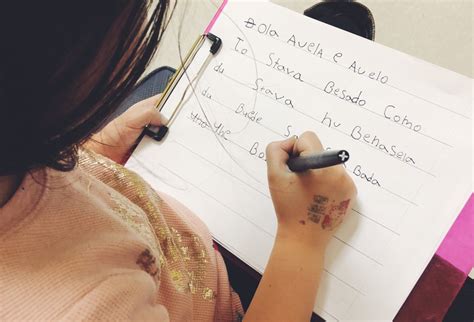 Ola AueLa e Auelo
To Stava Besado Como
du Stava nu BenaSeia
du Buide S
Bo Bada